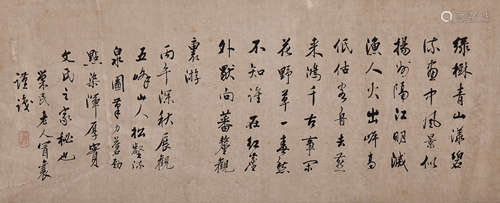 綠樹青山漾碧
流畫中風景似
揚州隔江明滅
漁人火出岸高
低估客舟去燕
來鴻千古事閒
花野草一春愁
不知誰在紅塵
外
向
觀
裏游
丙午深秋展觀
五峰山人松壑
泉圖筆力蒼勁
點染渾厚實
文氏之家秘也
葉民老人
謹識